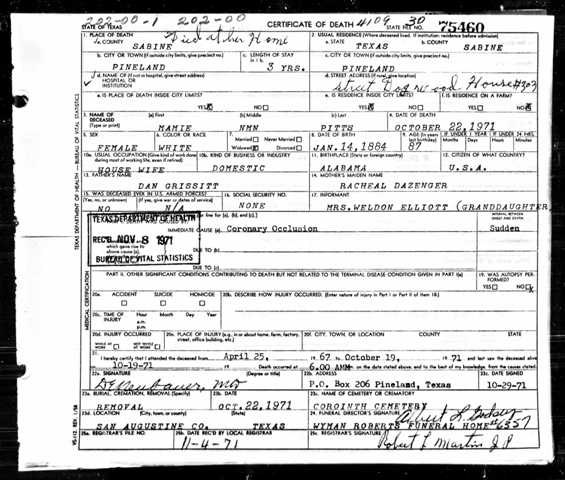 222-00-1 202-00 4109 30
STATE OF TEXAS CERTIFICATE OF DEATH STATE FILE NO. 75460
1. PLACE OF DEATH Died at her Home 2. USUAL RESIDENCE (Where deceased lived. If institution: residence before admission)
a. COUNTY SABINE a. STATE TEXAS b. COUNTY SABINE
b. CITY OR TOWN (If outside city limits, give precinct no.) c. LENGTH OF STAY in 1 b. c. CITY OR TOWN (If outside city limits, give precinct no.)
PINELAND 3 YRS. PINELAND
d. NAME OF (If not in hospital, give street address) HOSPITAL OR INSTITUTION d. STREET ADDRESS (If rural, give location)
Street Dogwood House#303
e. IS PLACE OF DEATH INSIDE CITY LIMITS? YES NO e. IS RESIDENCE INSIDE CITY LIMITS? YES NO f. IS RESIDENCE ON A FARM? YES NO
3. NAME OF DECEASED (Type or print) (a) First (b) Middle (c) Last 4. DATE OF DEATH
MAMIE NMN PITTS OCTOBER 22,1971
5. SEX 6. COLOR OR RACE 7. Married Never Married Widowed Divorced 8. DATE OF BIRTH 9. AGE (In years last birthday) IF UNDER 1 YEAR IF UNDER 24 HRS.
Months Days Hours Min.
FEMALE WHITE JAN.14,1884 87
10a. USUAL OCCUPATION (Give kind of work done during most of working life, even if retired) 10b. KIND OF BUSINESS OR INDUSTRY 11. BIRTHPLACE (State or foreign country) 12. CITIZEN OF WHAT COUNTRY?
HOUSE WIFE DOMESTIC ALABAMA U.S.A.
13. FATHER'S NAME 14. MOTHER'S MAIDEN NAME
DAN GRISSITT RACHEAL DAZENGER
15. WAS DECEASED EVER IN U.S. ARMED FORCES? 16. SOCIAL SECURITY NO. 17. INFORMANT
(Yes, no, or unknown) (If yes, give war or dates of service)
NO N/A NONE MRS.WELDON ELLIOTT (GRANDDAUGHTER
line for (a), (b), and (c).) INTERVAL BETWEEN ONSET AND DEATH
TEXAS DEPARTMENT OF HEALTH
IMMEDIATE CAUSE (a) Coronary Occlusion Sudden
REC'D NOV 8 1971
DUE TO (b)
which gave rise to above cause (a),
BUREAU OF VITAL STATISTICS
DUE TO (c)
PART II. OTHER SIGNIFICANT CONDITIONS CONTRIBUTING TO DEATH BUT NOT RELATED TO THE TERMINAL DISEASE CONDITION GIVEN IN PART I(a) 19. WAS AUTOPSY PERFORMED?
YES NO
20a. ACCIDENT SUICIDE HOMICIDE 20b. DESCRIBE HOW INJURY OCCURRED. (Enter nature of injury in Part I or Part II of item 18.)
20c. TIME OF INJURY Hour Month Day Year
a.m.
p.m.
20d. INJURY OCCURRED 20e. PLACE OF INJURY (e.g., in or about home, farm, factory, street, office building, etc.) 20f. CITY, TOWN, OR LOCATION COUNTY STATE
WHILE AT WORK NOT WHILE AT WORK
21. I hereby certify that I attended the deceased from April 25, 19 67 to October 19, 19 71 and last saw the deceased alive
10-19-71 Death occurred at 6.00 AM m. on the date stated above, and to the best of my knowledge, from the causes stated.
22a. SIGNATURE (Degree or title) 22b. ADDRESS 22c. DATE SIGNED
MD P.O. Box 206 Pineland, Texas 10-29-71
23a. BURIAL, CREMATION, REMOVAL (Specify) 23b. DATE 23c. NAME OF CEMETERY OR CREMATORY
REMOVAL OCT.22,1971 COROINTH CEMETERY
23d. LOCATION (City, town, or county) (State) 24. FUNERAL DIRECTOR'S SIGNATURE
SAN AUGUSTINE CO. TEXAS WYMAN ROBERTS FUNERAL HOME #6357
25a. REGISTRAR'S FILE NO. 25b. DATE REC'D BY LOCAL REGISTRAR 25c. REGISTRAR'S SIGNATURE
11-4-71 Robert L Martin J.P.
TEXAS DEPARTMENT OF HEALTH — BUREAU OF VITAL STATISTICS
MEDICAL CERTIFICATION